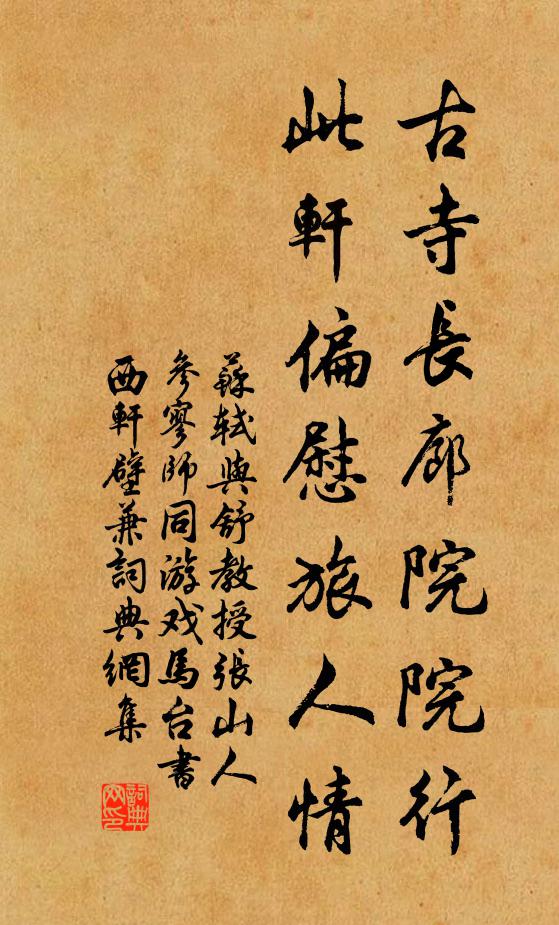 古寺長廊院院行
此軒偏慰旅人情
蘇軾與舒教授張山人
參寥師同游戏馬台書
西軒壁兼詞典網集
詞典網印